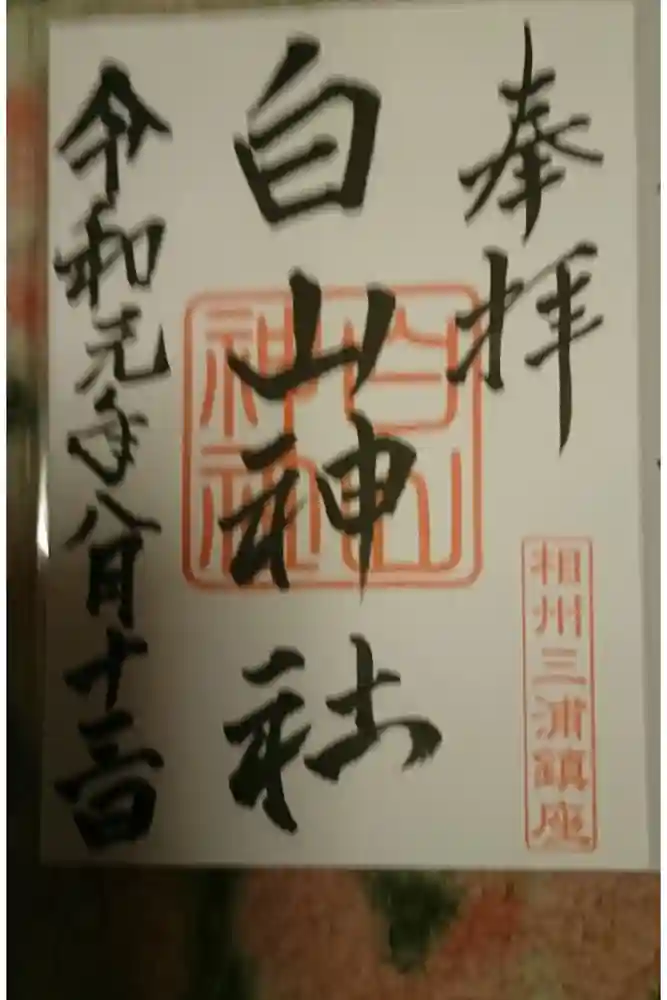 奉拝
相州三浦鎮座
白山神社
白山神社
令和元年八月十三日